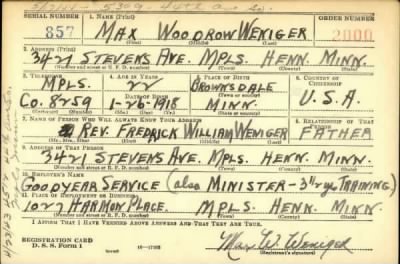 5/7/44 - 5309 - 44th Ave So.
SERIAL NUMBER 1. NAME (Print) ORDER NUMBER
857 MAX WOODROW WENIGER 2000
(First) (Middle) (Last)
2. ADDRESS (Print)
3421 STEVENS AVE. MPLS. HENN. MINN.
(Number and street or R. F. D. number) (Town) (County) (State)
3. TELEPHONE 4. AGE IN YEARS 5. PLACE OF BIRTH 6. COUNTRY OF CITIZENSHIP
MPLS. 22 BROWNSDALE
DATE OF BIRTH
CO. 8259 1-26-1918 MINN. U.S.A.
7. NAME OF PERSON WHO WILL ALWAYS KNOW YOUR ADDRESS 8. RELATIONSHIP OF THAT PERSON
REV. FREDRICK WILLIAM WENIGER FATHER
9. ADDRESS OF THAT PERSON
3421 STEVENS AVE. MPLS. HENN. MINN.
(Number and street or R. F. D. number) (Town) (County) (State)
10. EMPLOYER'S NAME
GOODYEAR SERVICE (also MINISTER - 3½ yrs TRAINING)
11. PLACE OF EMPLOYMENT OR BUSINESS
1027 HARMON PLACE. MPLS. HENN. MINN.
(Number and street or R. F. D. number) (Town) (County) (State)
I AFFIRM THAT I HAVE VERIFIED ABOVE ANSWERS AND THAT THEY ARE TRUE.
REGISTRATION CARD
D. S. S. Form 1 16-17105 Max W. Weniger
(Registrant's signature)